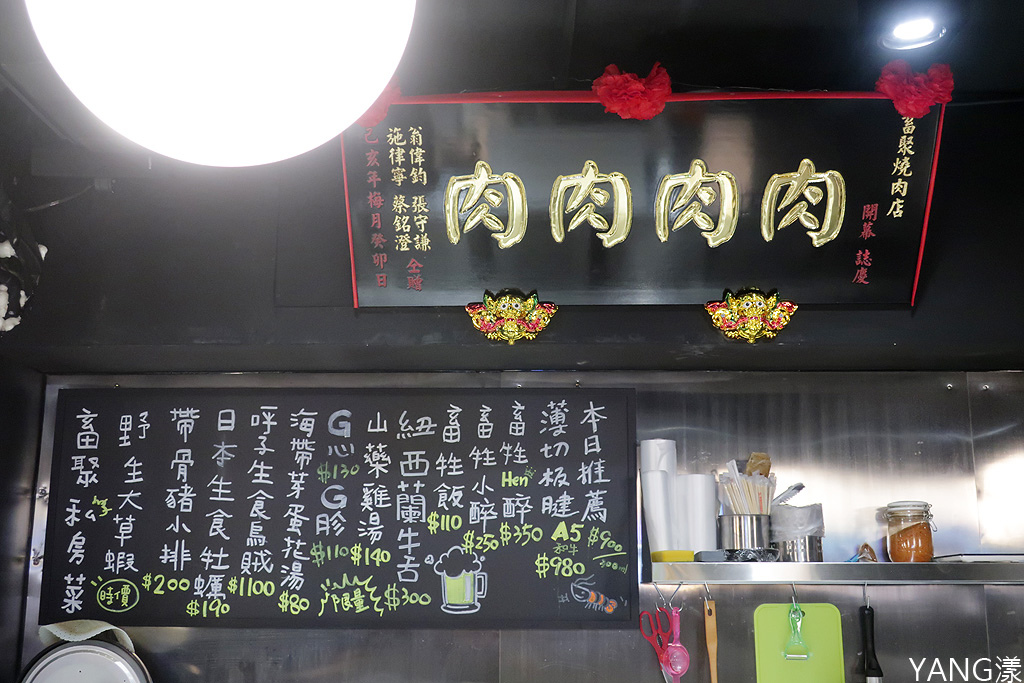 畜聚燒肉店
開幕 誌慶
肉肉肉肉
翁偉鈞 張守謙
施律寧 蔡銘澄 仝贈
己亥年梅月癸卯日
本日推薦
薄切板腱 A5 和牛 $980
畜牲Hen醉 $350 $900
畜牲小醉 $250
畜牲飯 $110
紐西蘭牛舌 $300
山藥雞湯 $140
G心 $130 G胗 $110
限量
海帶芽蛋花湯 $80
呼子生食烏賊 $1100
日本生食牡蠣 $190
帶骨豬小排 $200
野生大草蝦 時價
畜聚私房菜
YANG漾